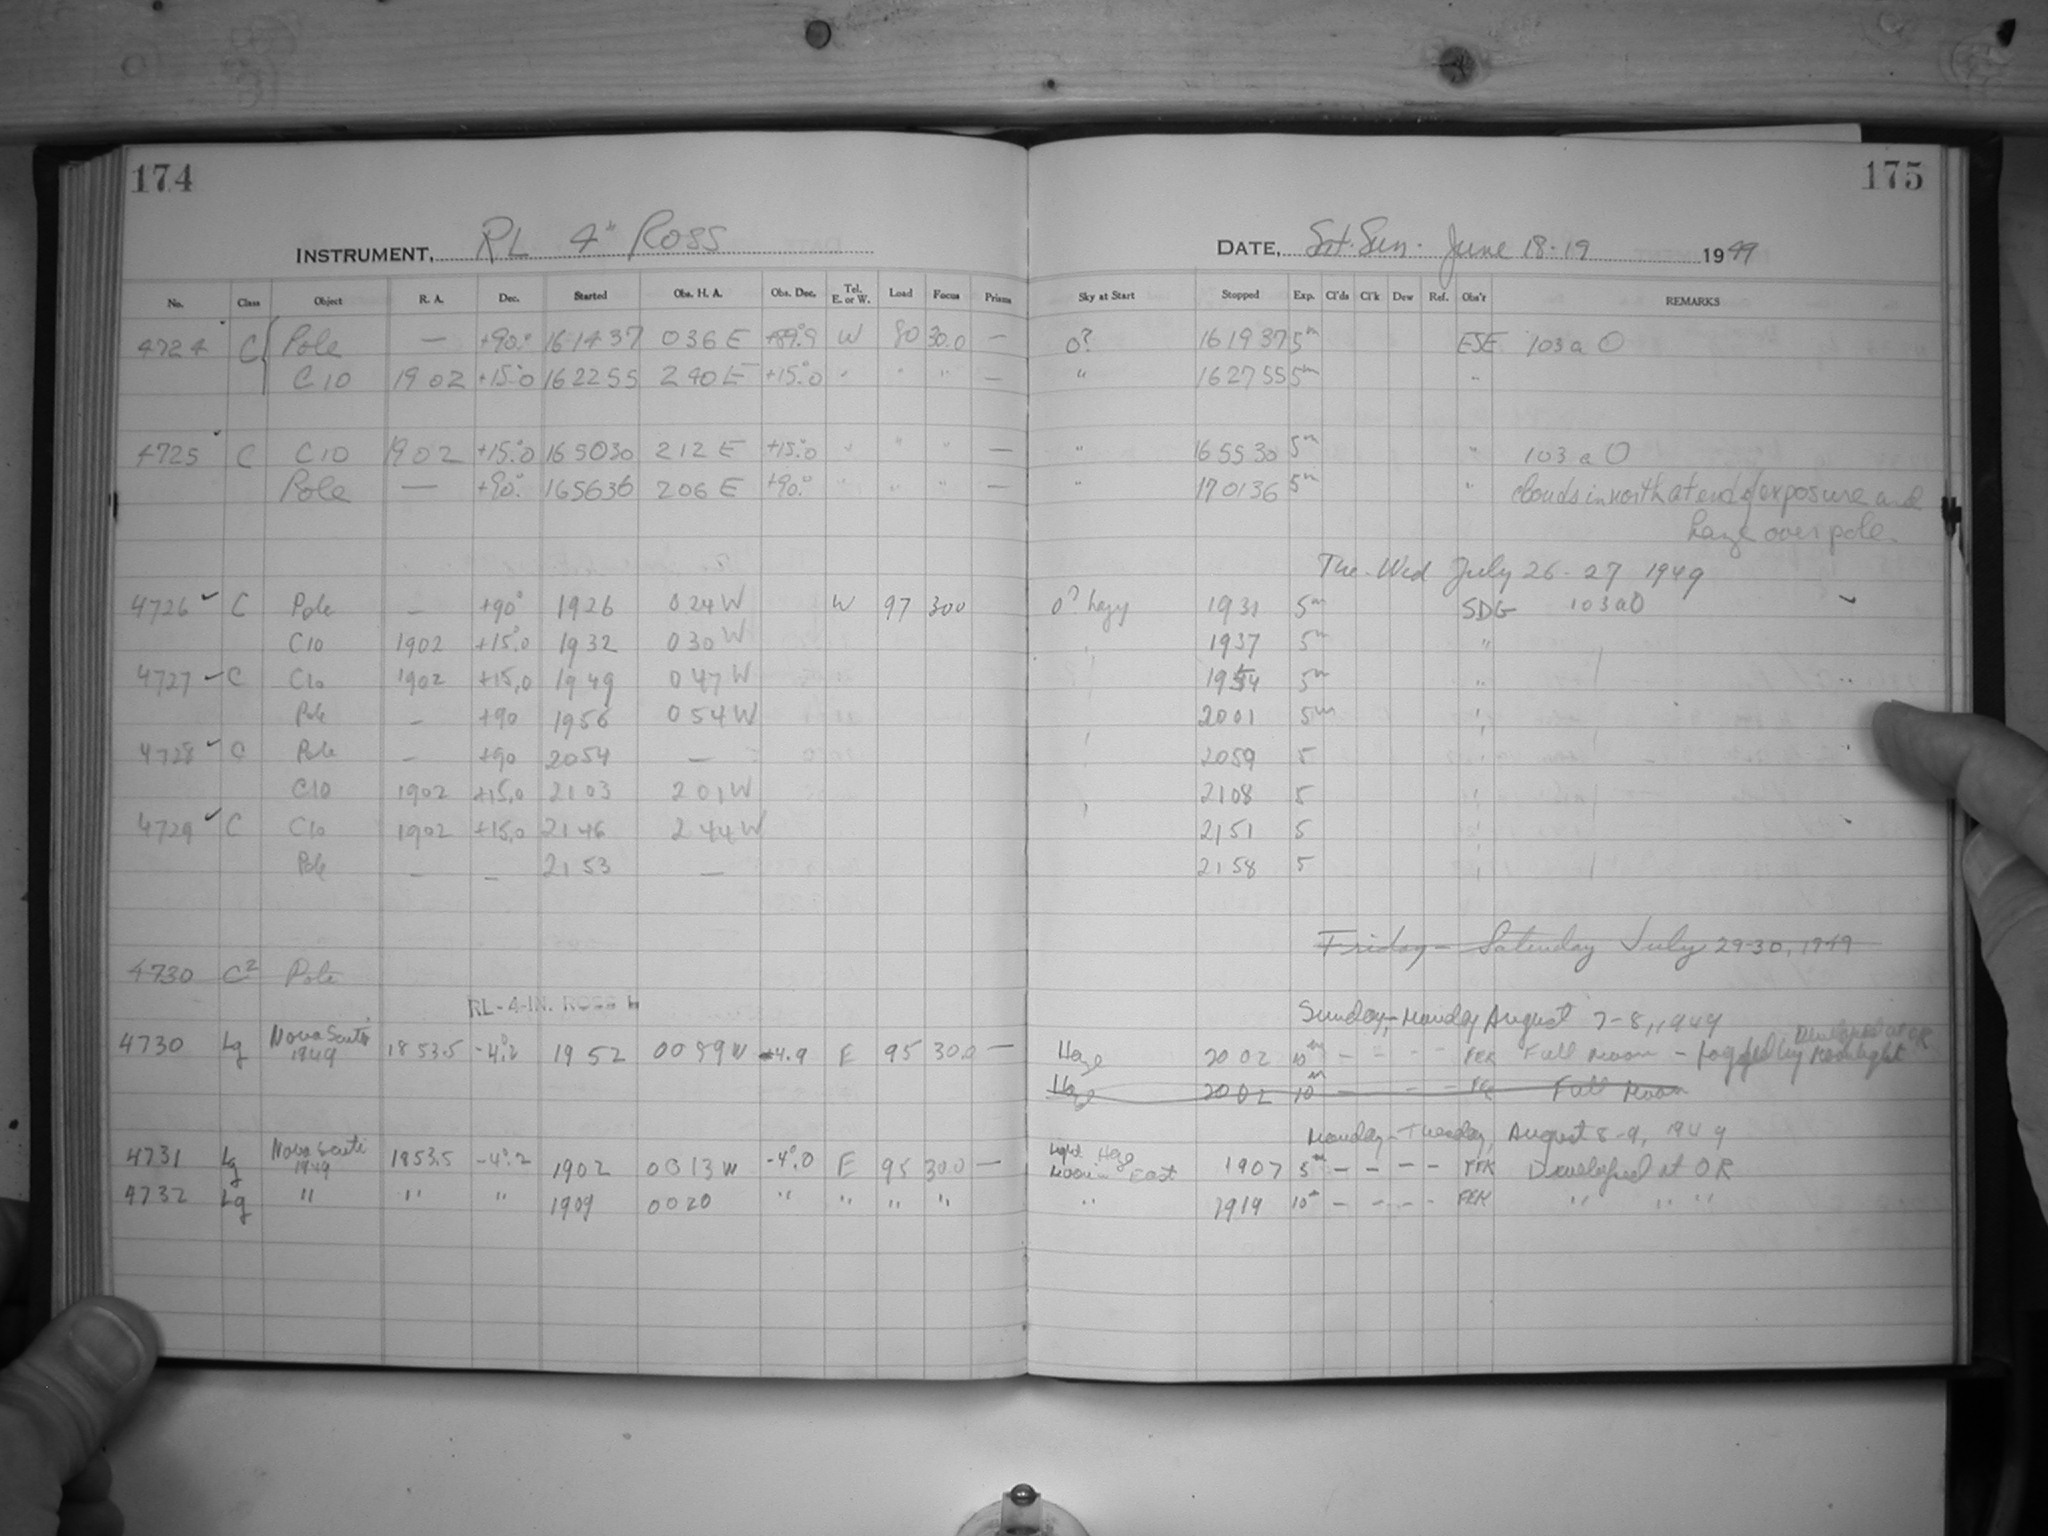 174
175
INSTRUMENT, RL 4" ROSS
DATE, Sat. Sun. June 18-19 1949
No. Class Object R. A. Dec. Started Obs. H. A. Obs. Dec. Tel. E. or W. Load Focus Prisms Sky at Start Stopped Exp. Cl'ds Cl'k Dew Ref. Obs'r REMARKS
4724 C Pole — +90.° 161437 036 E +89.°9 W 80 30.0 — 0? 161937 5m ESE 103a O
C10 1902 +15.°0 162255 240 E +15.°0 " " " — " 162755 5m "
4725 C C10 1902 +15.°0 165030 212 E +15.°0 " " " — " 165530 5m " 103a O
Pole — +90.° 165636 206 E +90.° " " " — " 170136 5m " clouds in north at end of exposure and
haze over pole.
Tue-Wed July 26-27 1949
4726 C Pole — +90° 1926 024 W W 97 300 0? hazy 1931 5m SDG 103a0
C10 1902 +15.°0 1932 030 W 1937 5m "
4727 C C10 1902 +15.0 1949 047 W 1954 5m "
Pole — +90 1956 054 W 2001 5m "
4728 C Pole — +90 2054 — 2059 5
C10 1902 +15.0 2103 201 W 2108 5 "
4729 C C10 1902 +15.0 2146 244 W 2151 5
Pole — — 2153 — 2158 5
Friday - Saturday July 29-30, 1949
4730 C2 Pole
RL-4-IN. ROSS
Sunday-Monday August 7-8, 1949
Developed at OR
4730 Lg Nova Scuti 1949 1853.5 -4.°2 1952 0059 W -4.9 E 95 300 — Haze 2002 10m — — — — Full Moon - Fogged by Moonlight
Haze 2002 10m — — — Full Moon
Monday-Tuesday, August 8-9, 1949
4731 Lg Nova Scuti 1949 1853.5 -4.°2 1902 0013 W -4.°0 E 95 300 — Light Haze Moon in East 1907 5m — — — — Developed at OR
4732 Lg " " " 1909 0020 " " " " " 1919 10m — — — — " " "